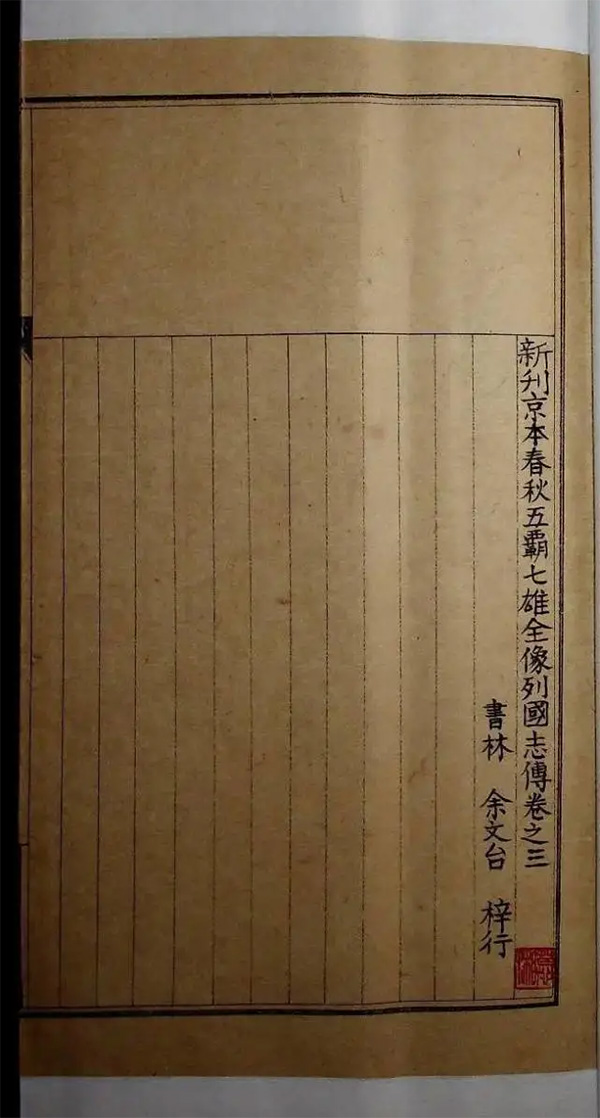 新刊京本春秋五霸七雄全像列國志傳卷之三
書林 余文台 梓行